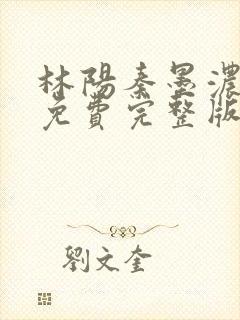 林陽秦墨濃
免費完整版
劉文奎